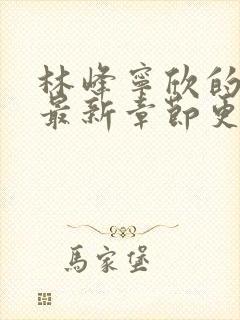 林峰寧欣的
最新章節更
馬家堡